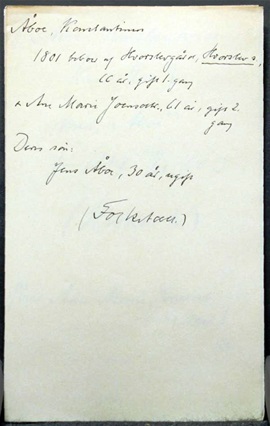 Åboe, Konstantinus
1801 beboer af Hvorslevgård, Hvorslev s,
66 år, gift 1. gang
& Ane Marie Joensdtt. 61 år, gift 2.
gang
Deres søn:
Jens Åboe, 30 år, ugift
(Folketæll.)